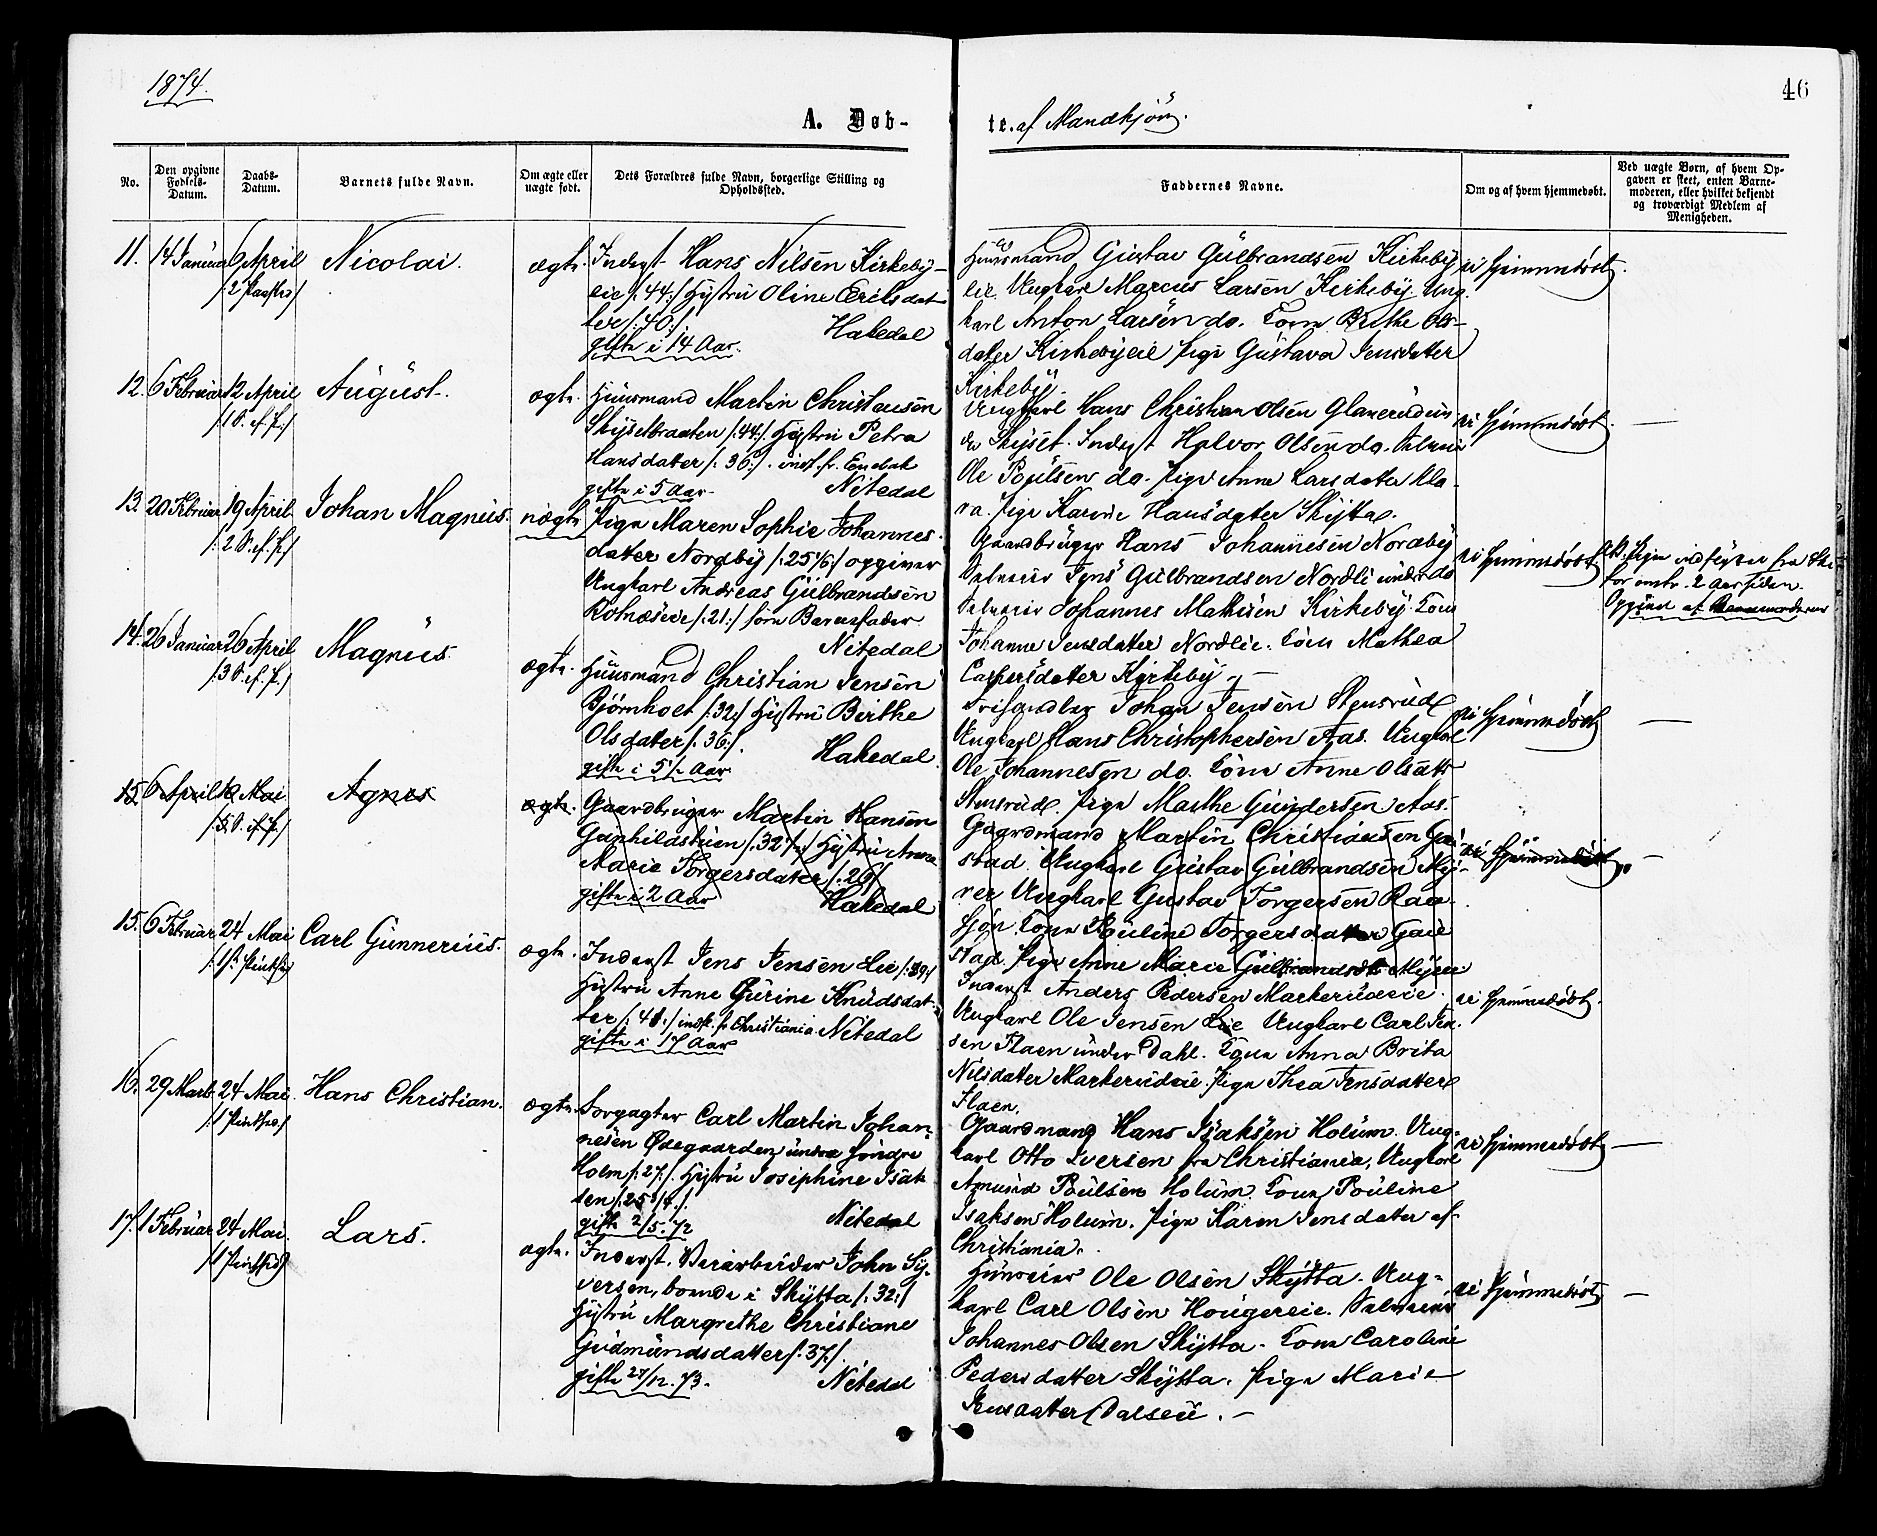 1874.
46
A. Døb-
te. af Mandkjøn.
No.
Den opgivne Fødsels-Datum.
Daabs-Datum.
Barnets fulde Navn.
Om ægte eller uægte født.
Dets Forældres fulde Navn, borgerlige Stilling og Opholdssted.
Faddernes Navne.
Om og af hvem hjemmedøbt.
Ved uægte Børn, af hvem Op-
gaven er skeet, enten Barne-
moderen, eller hvilket bekjendt
og troværdigt Medlem af
Menigheden.
11. 14 Januar 6 April Nicolai. ægte.
/: 2 Paaske/
Inderst Hans Nilsen Kirkeby-
eie /:44:/ Hustru Oline Eriksdat
ter /:40:/.
Hakedal
gifte i 14 Aar.
Huusmand Gustav Gulbrandsen Kirkeby
eie. Ungkarl Marcus Larsen Kirkeby. Ung-
karl Anton Larsen do. Kone Birthe Ols-
datter Kirkebyeie Pige Gustava Jensdatter
Kirkeby.
ei hjemmedøbt.
12. 6 Februar 12 April August. ægte.
/: 1 S. e. P./
Huusmand Martin Christensen
Skysetbraaten /:44:/. Hustru Petra
Hansdatter /:36:/. indf. fr. Enebak
gifte i 5 Aar.
Nitedal
Ungkarl Hans Christian Olsen Glanerudun
der Skyset. Inderst Halvor Olsen do.
Ole Poulsen do. Pige Anne Larsdatter Kla-
ra. Pige Karine Hansdatter Skytta.
ei hjemmedøbt. —
13. 20 Februar 19 April Johan Magnus. uægte
/: 2 S. e. P./
Pige Maren Sophie Johannes-
datter Nordby /:25 1/6:/ opgiver
Ungkarl Andreas Gulbrandsen
Rotnæseie /:21:/ som Barnefader
Nitedal
Gaardbruger Hans Johannesen Nordby
Jens Gulbrandsen Nordli under do
Johannes Mathisen Kirkeby. Kone
Johanne Jensdatter Nordlie. Kone Mathea
Caspersdatter Kirkeby. —
ei hjemmedøbt.
Pige indflyttet fra
for omtr. 2 Aar siden.
Opgivet af Barnemoderen
14. 26 Januar 26 April Magnus. ægte.
/: 3 S. e. P./
Huusmand Christian Jensen
Bjørnholt /:32:/ Hustru Birthe
Olsdatter /:36:/.
Hakedal.
gifte i 5 1/2 Aar
Johan Jensen Stensrud
Ungkarl Hans Christophersen Aas. Ungkarl
Ole Johannesen do. Kone Anne Olsdtr
Stensrud. Pige Marthe Gundersen Aas.
ei hjemmedøbt —
15. 6 April 10 Mai Agnes ægte.
/: 5 S. e. P./
Gaardbruger Martin Hansen
Gunhildstuen /:32 1/2:/ Hustru Anne
Marie Torgersdatter /:26/
gifte i 2 Aar
Hakedal
Gaardmand Martin Christiansen Gau
stad. Ungkarl Gustav Gulbrandsen My-
rer Ungkarl Gustav Torgersen Raa-
sjøn. Kone Pauline Torgersdatter Gau
stad. Pige Anne Marie Gulbrandsdtr Myrer
ei hjemmedøbt. —
15. 6 Februar 24 Mai Carl Gunnerius. ægte.
/: 1ste Pintsed/
Inderst Jens Jensen Lie /:39:/
Hustru Anne Gurine Knudsdat-
ter /:40:/ indf. fr Christiania. Nitedal
gifte i 17 Aar
Inderst Anders Pedersen Markerudeie.
Ungkarl Ole Jensen Lie Ungkarl Carl Jen-
sen Flaen under Dahl. Kone Anna Brita
Nilsdatter Markerudeie. Pige Thea Jensdatter
Flaen.
ei hjemmedøbt.
16. 29 Marts 24 Mai. Hans Christian. ægte.
/: 1 Pintsed/
Forpagter Carl Martin Johan-
nesen Ødegaarden under søndre
Holm /:27:/. Hustru Josephine Isak
sen /:25 3/4:/.
gifte 2/5. 72
Nitedal
Gaardmand Hans Isaksen Holum. Ung-
karl Otto Iversen fra Christiania, Ungkarl
Amund Poulsen Holum. Kone Pouline
Isaksen Holum. Pige Karen Jensdatter af
Christiania.
ei hjemmedøbt —
17. 1 Februar 24 Mai. Lars. ægte.
/: 1 Pintsed/
Inderst. Veiarbeider John Sy-
versen, boende i Skytta /:32:/
Hustru Margrethe Christiane
Gudmundsdatter /:37:/.
gifte 27/12. 73.
Nitedal
Huuseier Ole Olsen Skytta. Ung-
karl Carl Olsen Hougereie.
Johannes Olsen Skytta. Kone Caroline
Pedersdatter Skytta. Pige Marie
Jensdatter Dalseie. —
ei hjemmedøbt —